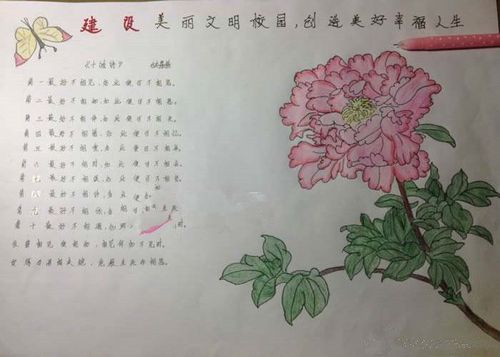 建设美丽文明校园,创造美好幸福人生
《十诫诗》
第一最好不相见,如此便可不相恋。
第二最好不相知,如此便可不相思。
第三最好不相伴,如此便可不相欠。
第四最好不相惜,如此便可不相忆。
第五最好不相爱,如此便可不相弃。
第六最好不相对,如此便可不相会。
第七最好不相误,如此便可不相负。
第八最好不相许,如此便
第九最好不相依,如
第十最好不相遇,如
但曾相见便相知,相见何如不见时。
安得与君相决绝,免教生死作相思。